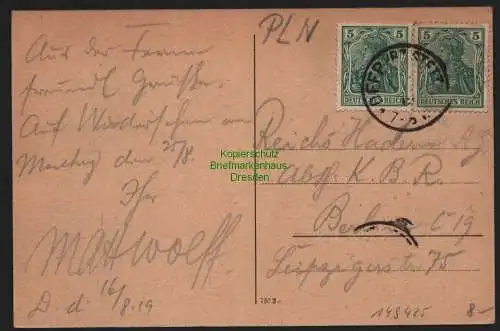 PLN
Aus der Ferne
freundl. Grüße.
Auf Wiedersehen am
Montag den 25/8.
Ihr
Max Wolff
D. d. 16/8.19
5 5 5 5
DEUTSCHES REICH DEUTSCHES REICH
7-8
Kopierschutz
Briefmarkenhaus
Dresden
Reichs
Abt. K. B. R.
Berlin C 19
Leipzigerstr 75
149425
8-